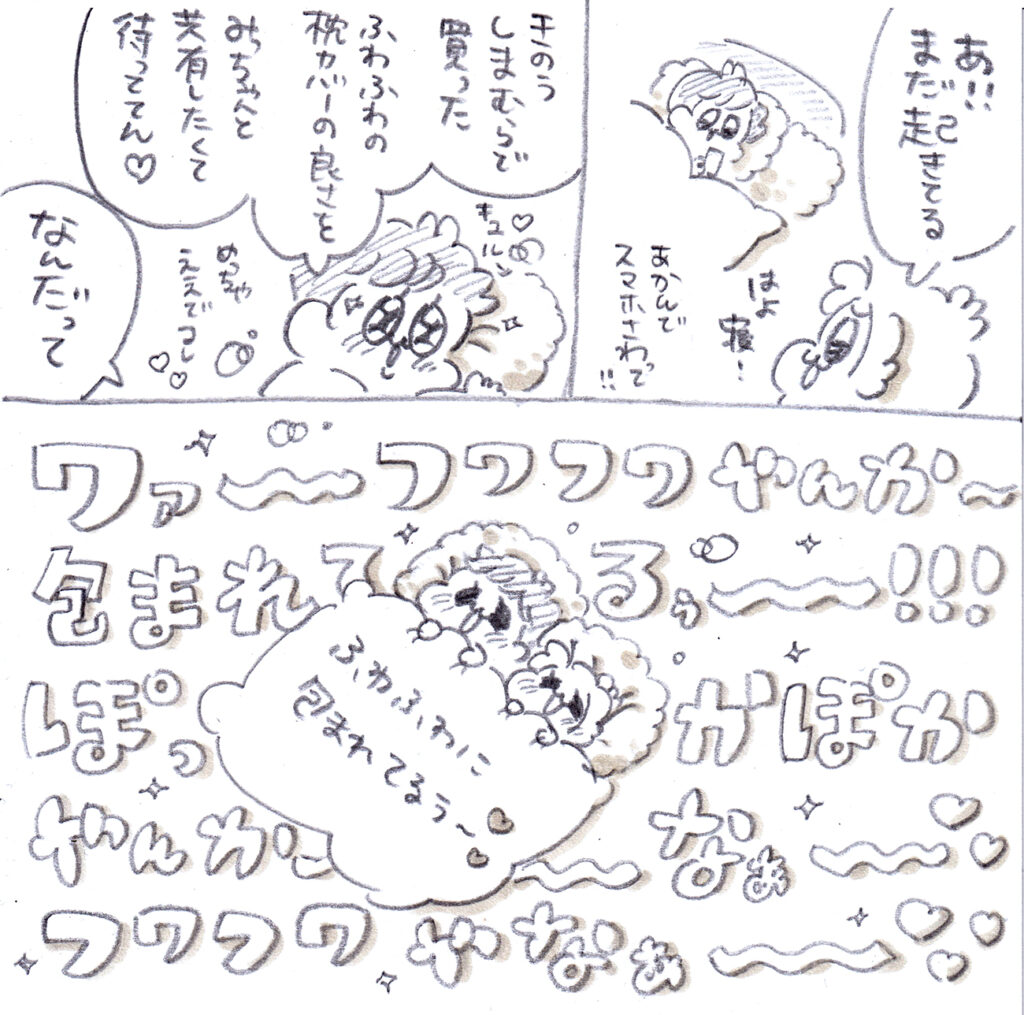 あ!!
まだ起きてる
はよ
寝!
あかんで
スマホさわって
!!
きのう
しまむらで
買った
ふわふわの
枕カバーの良さを
みっちゃんと
共有したくて
待っててん♡
キュルン♡
めっちゃ
ええでコレ
なんだって
ワァ〜〜フワフワやんか〜
包まれてるぅ〜〜!!!
ぽっかぽか
やんかこ〜なぁ〜〜
フワフワやなぁ〜〜
ふわふわに
包まれてるぅ〜